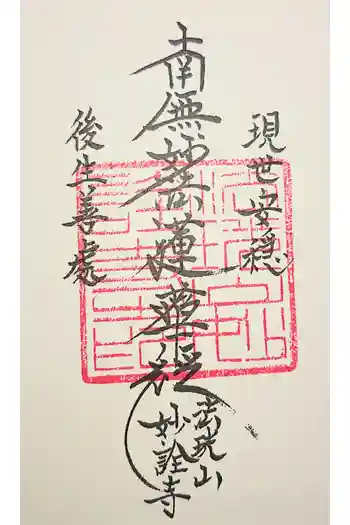 現世安穏
南無妙法蓮華経
後生善處
妙詮寺